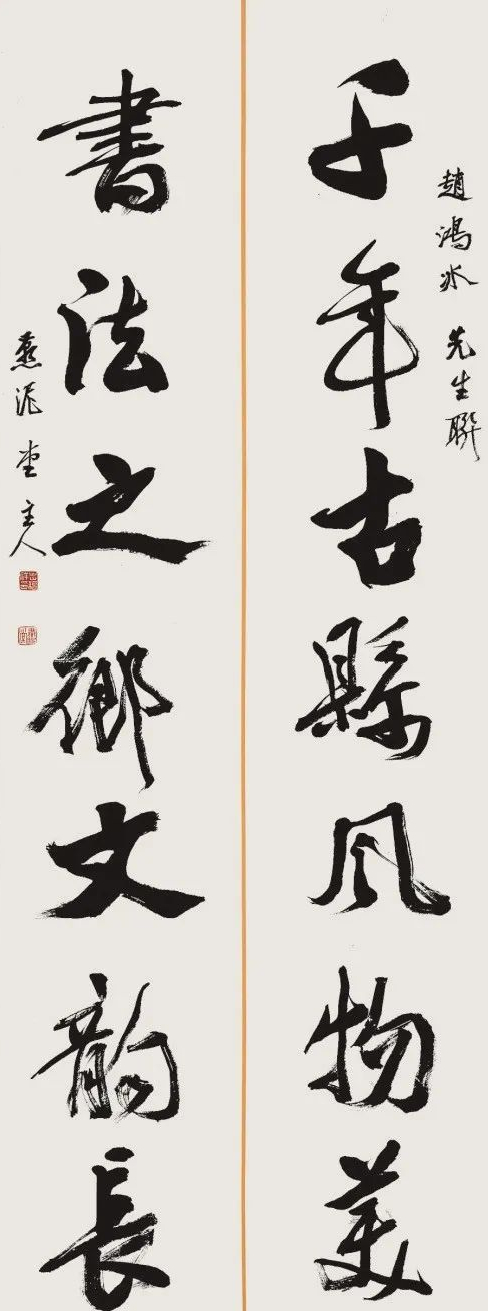 千年古縣風物美
趙鴻冰 先生聯
書法之鄉文韵長
燕泥堂主人